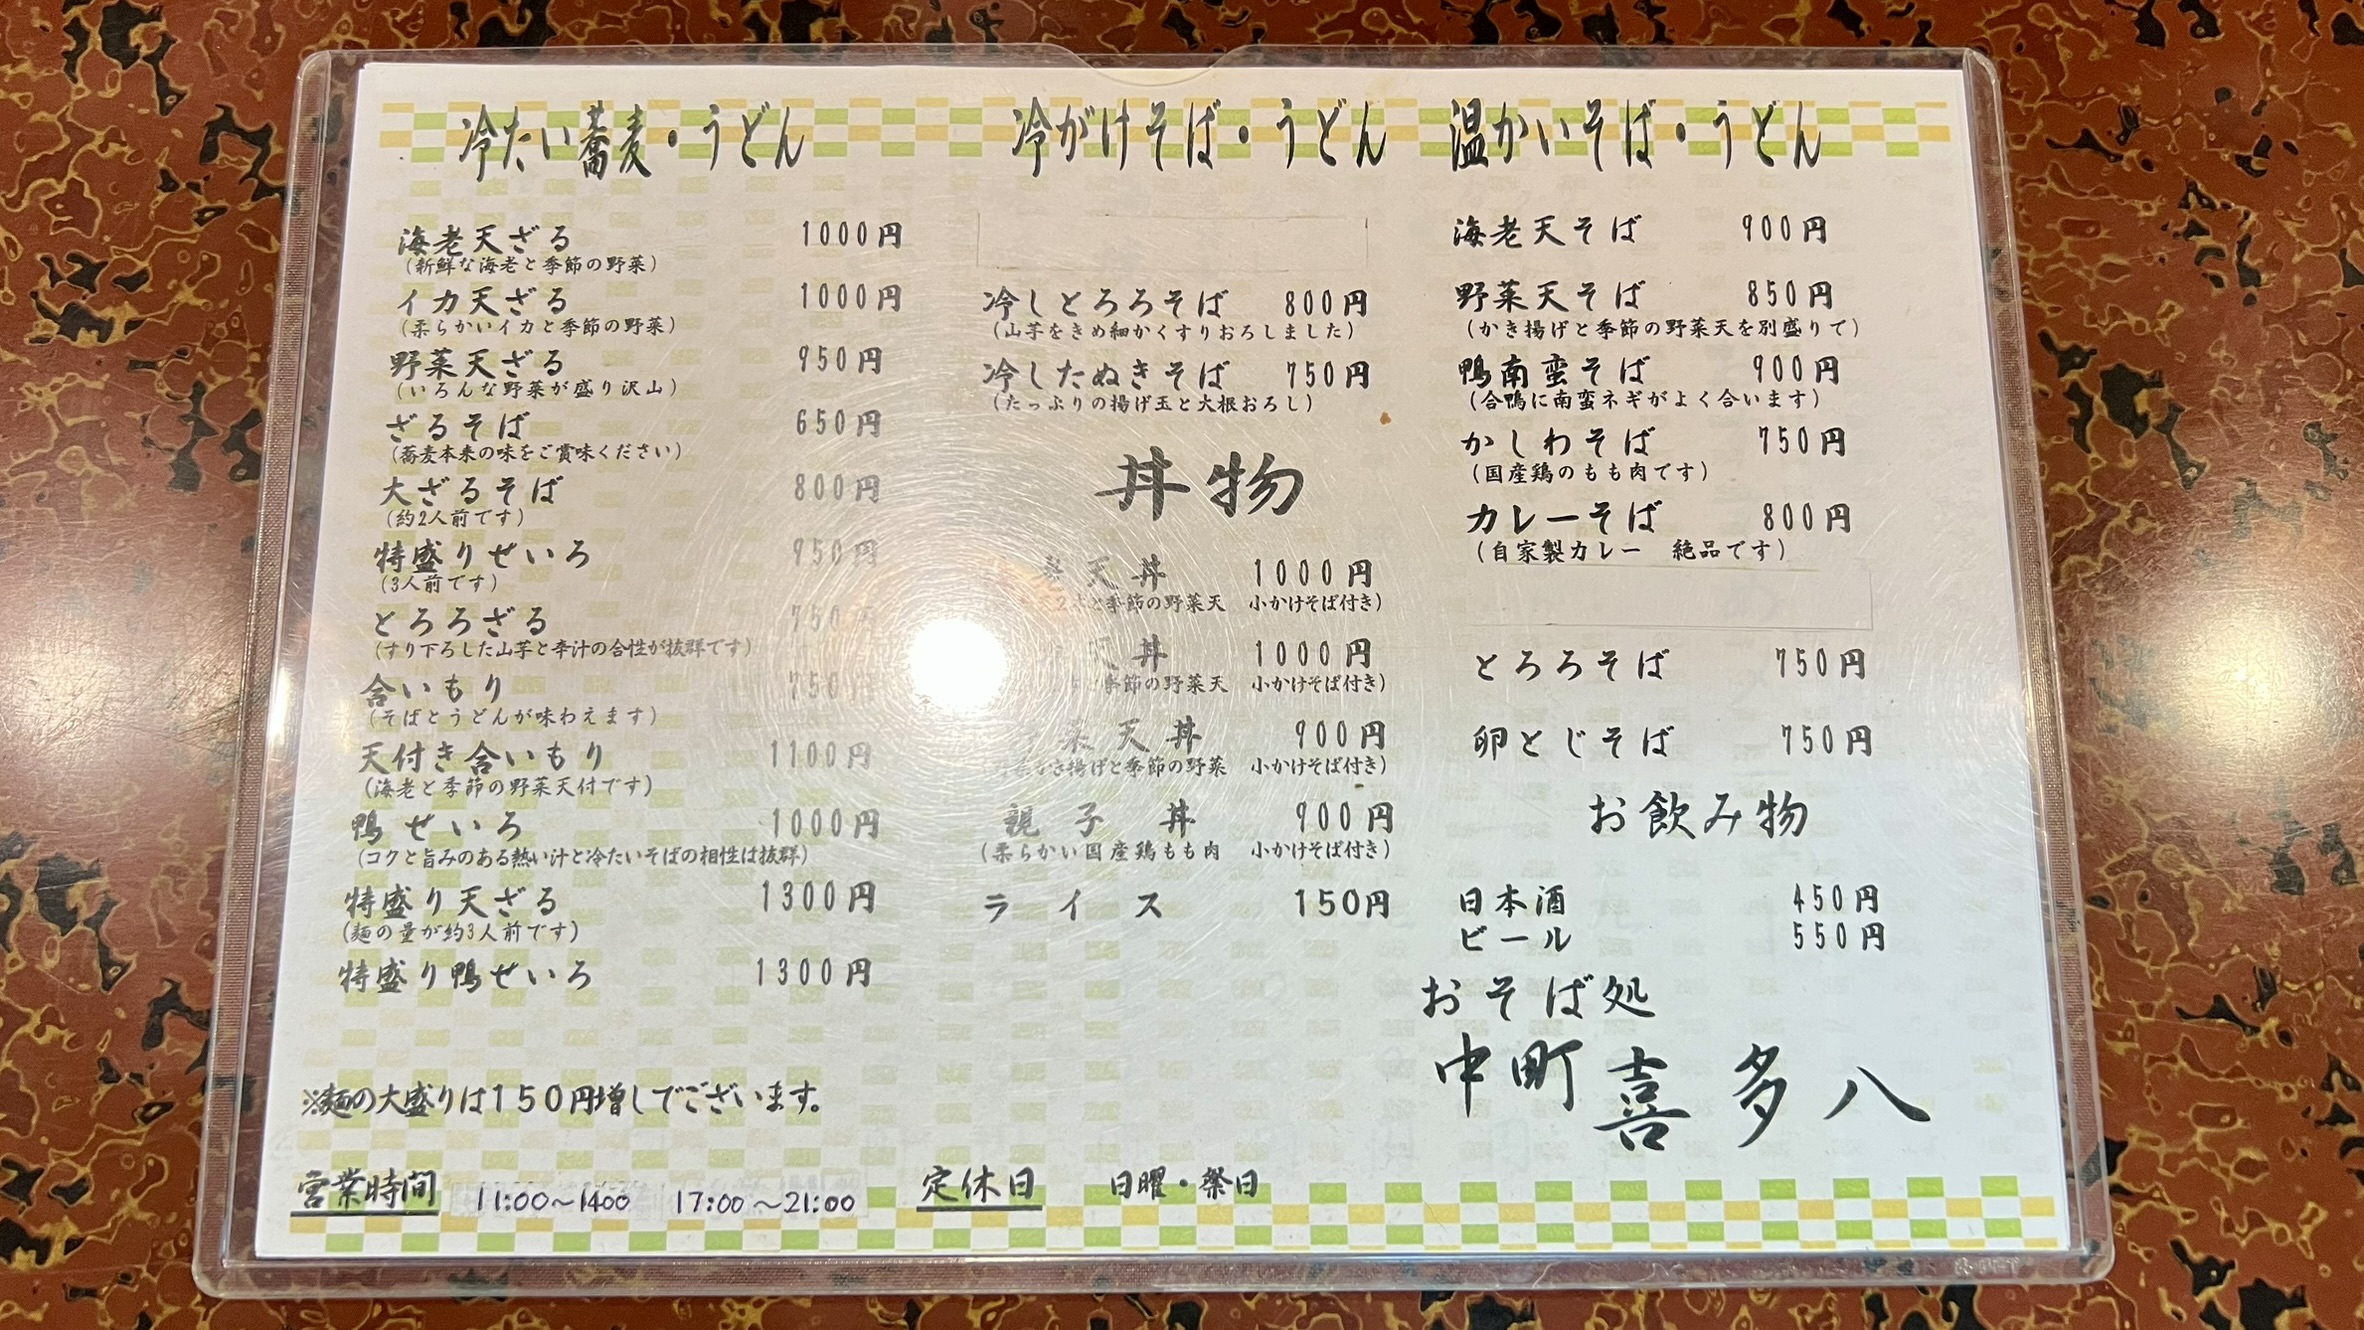 冷たい蕎麦・うどん
海老天ざる 1000円
(新鮮な海老と季節の野菜)
イカ天ざる 1000円
(柔らかいイカと季節の野菜)
野菜天ざる 950円
(いろんな野菜が盛り沢山)
ざるそば 650円
(蕎麦本来の味をご賞味ください)
大ざるそば 800円
(約2人前です)
特盛りせいろ 950円
(3人前です)
とろろざる 750円
(すり下ろした山芋と辛汁の合性が抜群です)
合いもり 750円
(そばとうどんが味わえます)
天付き合いもり 1100円
(海老と季節の野菜天付です)
鴨せいろ 1000円
(コクと旨みのある熱い汁と冷たいそばの相性は抜群)
特盛り天ざる 1300円
(麺の量が約3人前です)
特盛り鴨せいろ 1300円
※麺の大盛りは150円増しでございます。
冷がけそば・うどん
冷しとろろそば 800円
(山芋をきめ細かくすりおろしました)
冷したぬきそば 750円
(たっぷりの揚げ玉と大根おろし)
丼物
老天丼 1000円
2本と季節の野菜天 小かけそば付き)
天丼 1000円
季節の野菜天 小かけそば付き)
菜天丼 900円
かき揚げと季節の野菜 小かけそば付き)
親子丼 900円
(柔らかい国産鶏もも肉 小かけそば付き)
ライス 150円
温かいそば・うどん
海老天そば 900円
野菜天そば 850円
(かき揚げと季節の野菜天を別盛りで)
鴨南蛮そば 900円
(合鴨に南蛮ネギがよく合います)
かしわそば 750円
(国産鶏のもも肉です)
カレーそば 800円
(自家製カレー 絶品です)
とろろそば 750円
卵とじそば 750円
お飲み物
日本酒 450円
ビール 550円
おそば処
中町 喜多八
営業時間 11:00～1400 17:00～21:00 定休日 日曜・祭日